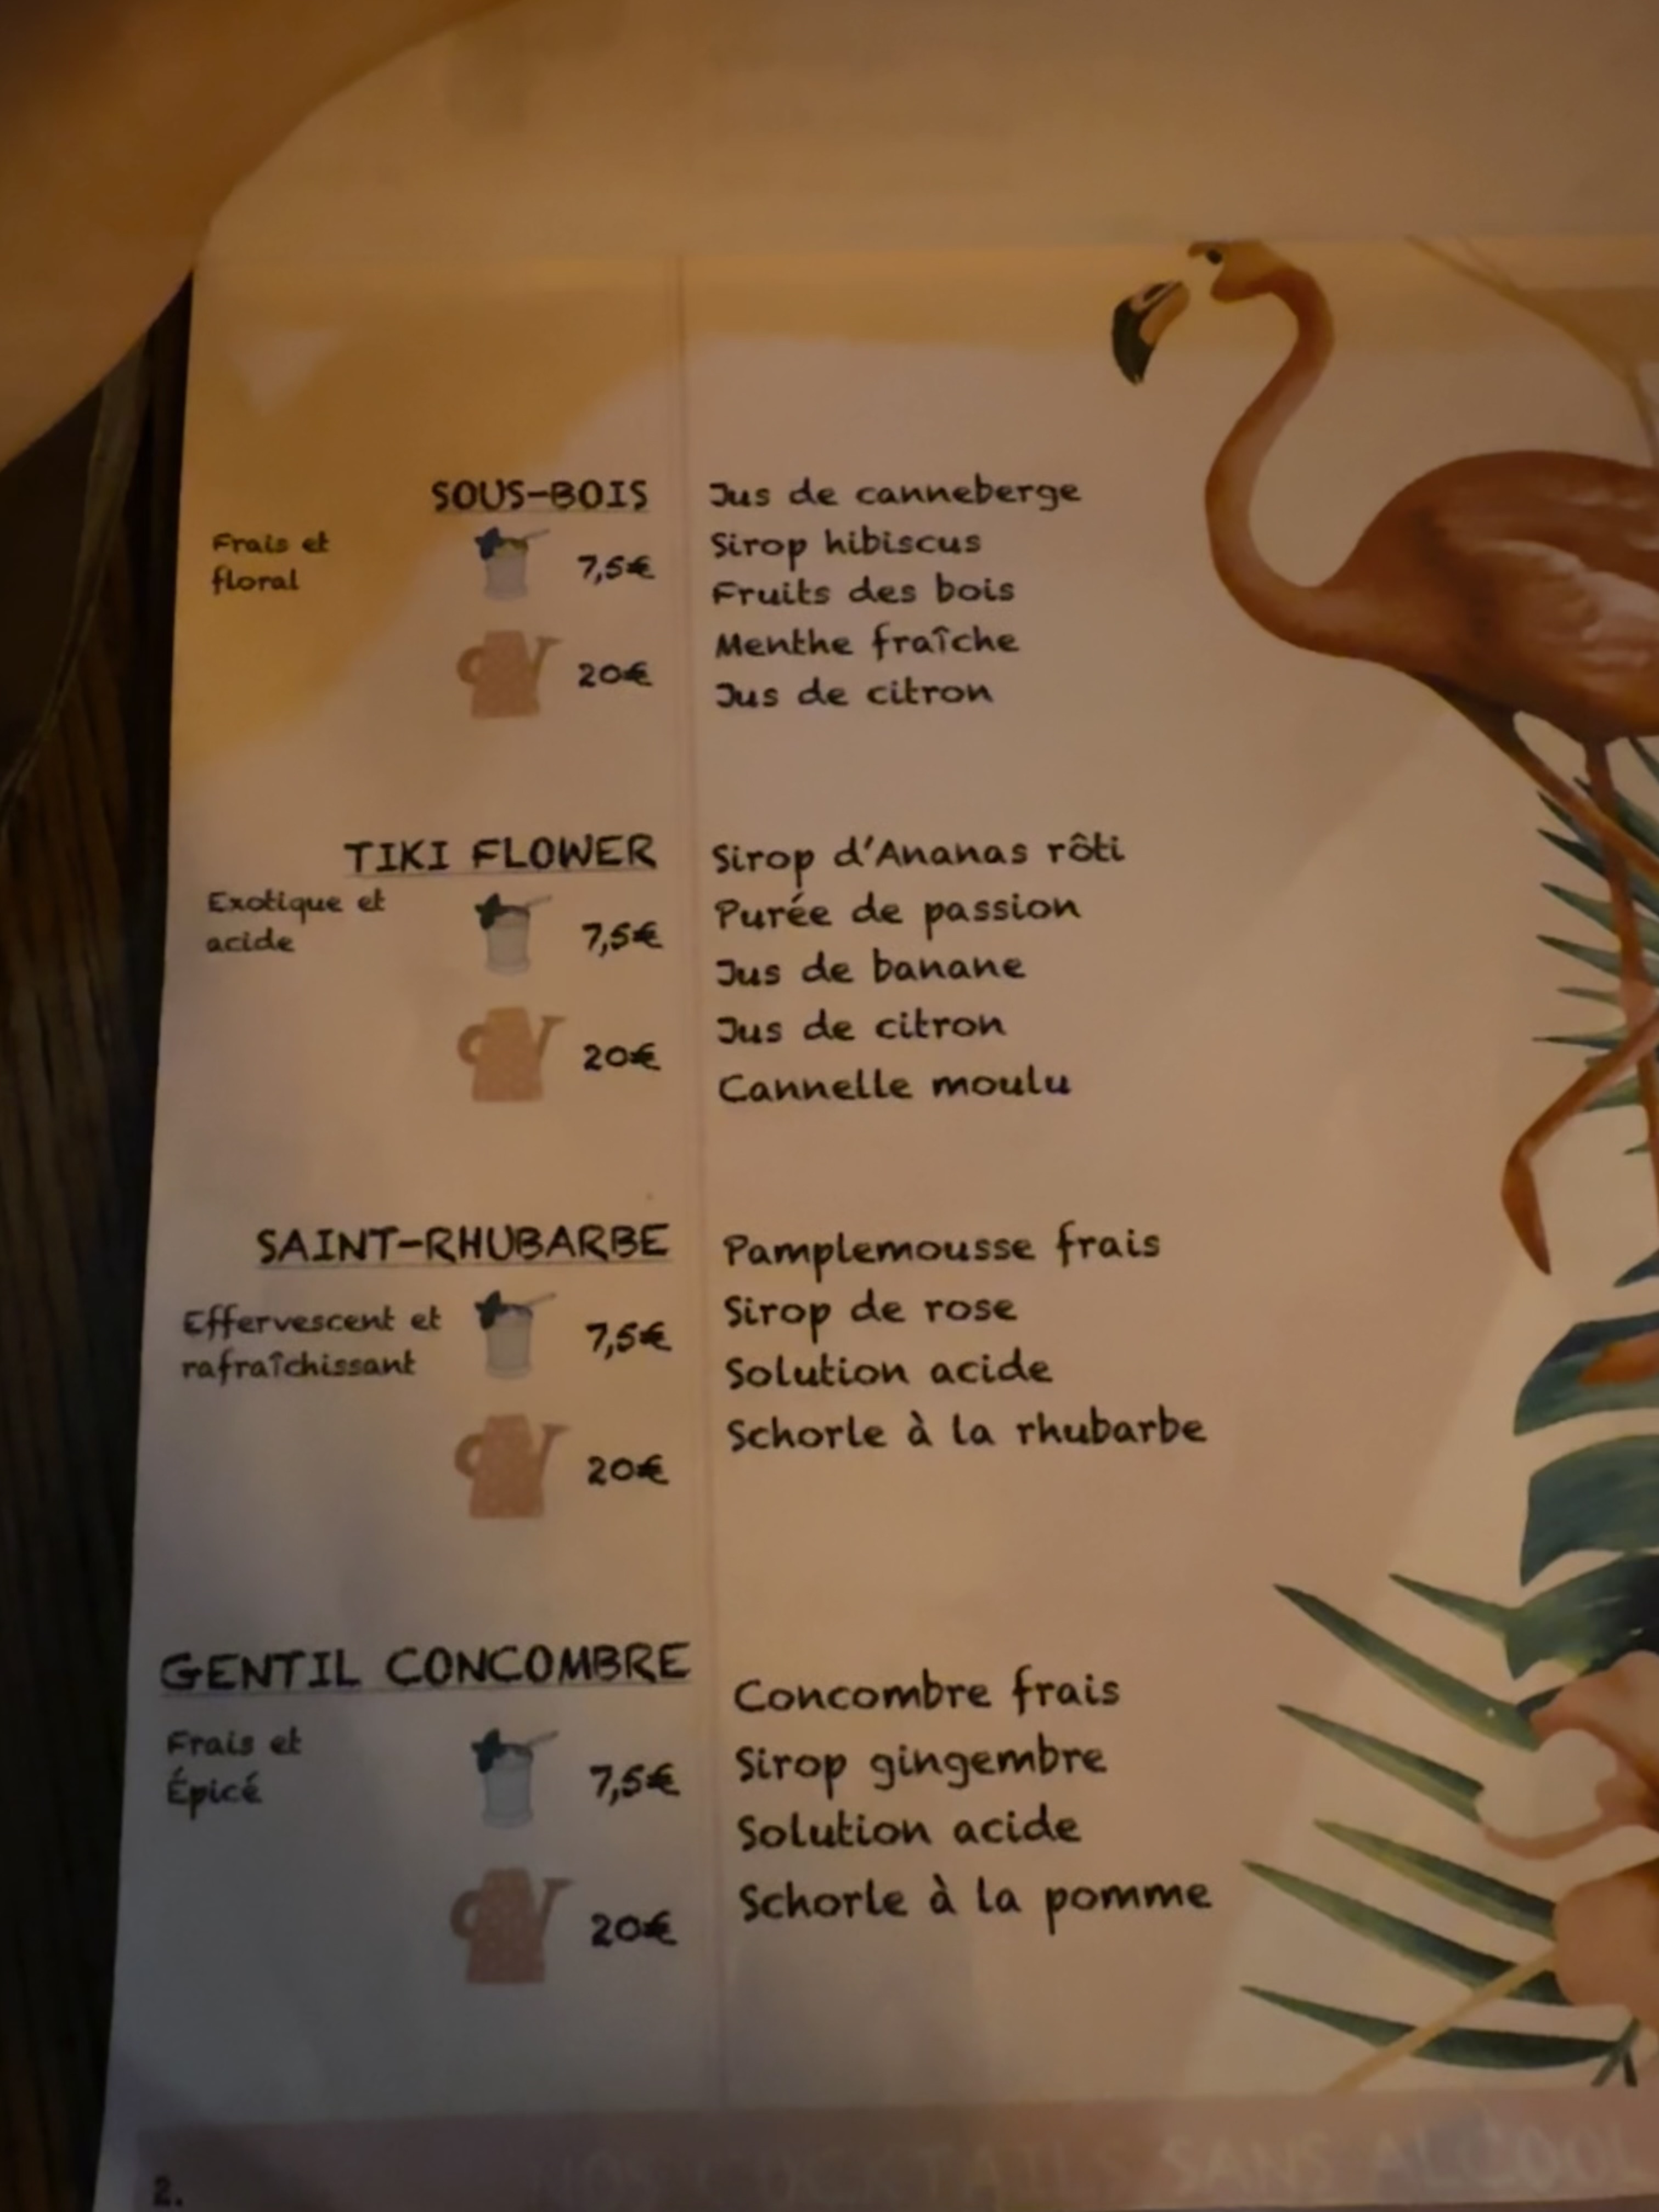 SOUS-BOIS
Frais et
floral
7,5€
20€
Jus de canneberge
Sirop hibiscus
Fruits des bois
Menthe fraîche
Jus de citron
TIKI FLOWER
Exotique et
acide
7,5€
20€
Sirop d'Ananas rôti
Purée de passion
Jus de banane
Jus de citron
Cannelle moulu
SAINT-RHUBARBE
Effervescent et
rafraîchissant
7,5€
20€
Pamplemousse frais
Sirop de rose
Solution acide
Schorle à la rhubarbe
GENTIL CONCOMBRE
Frais et
Épicé
7,5€
20€
Concombre frais
Sirop gingembre
Solution acide
Schorle à la pomme
NOS COCKTAILS SANS ALCOOL
2.